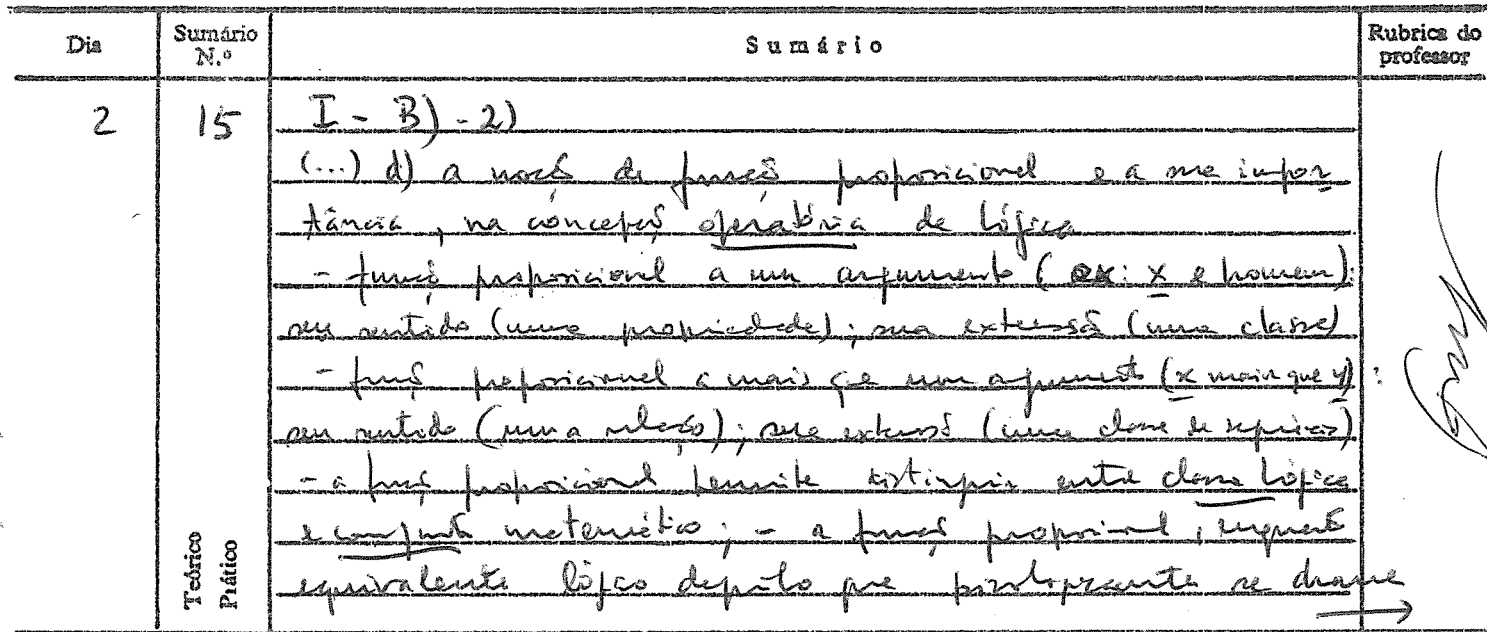 Dia
Sumário N.º
Sumário
Rubrica do professor
2
15
I - B) - 2)
(...) d) a noção de função proposicional e a sua impor
tância, na concepção operatória de Lógica
- função proposicional a um argumento (ex: x é homem):
seu sentido (uma propriedade); sua extensão (uma classe)
- função proposicional a mais que um argumento (x maior que y):
seu sentido (uma relação); sua extensão (uma classe de sequências)
- a função proposicional permite distinguir entre classe lógica
e conjunto matemático; - a função proposicional, enquanto
equivalente lógico daquilo que psicologicamente se chama
Teórico
Prático